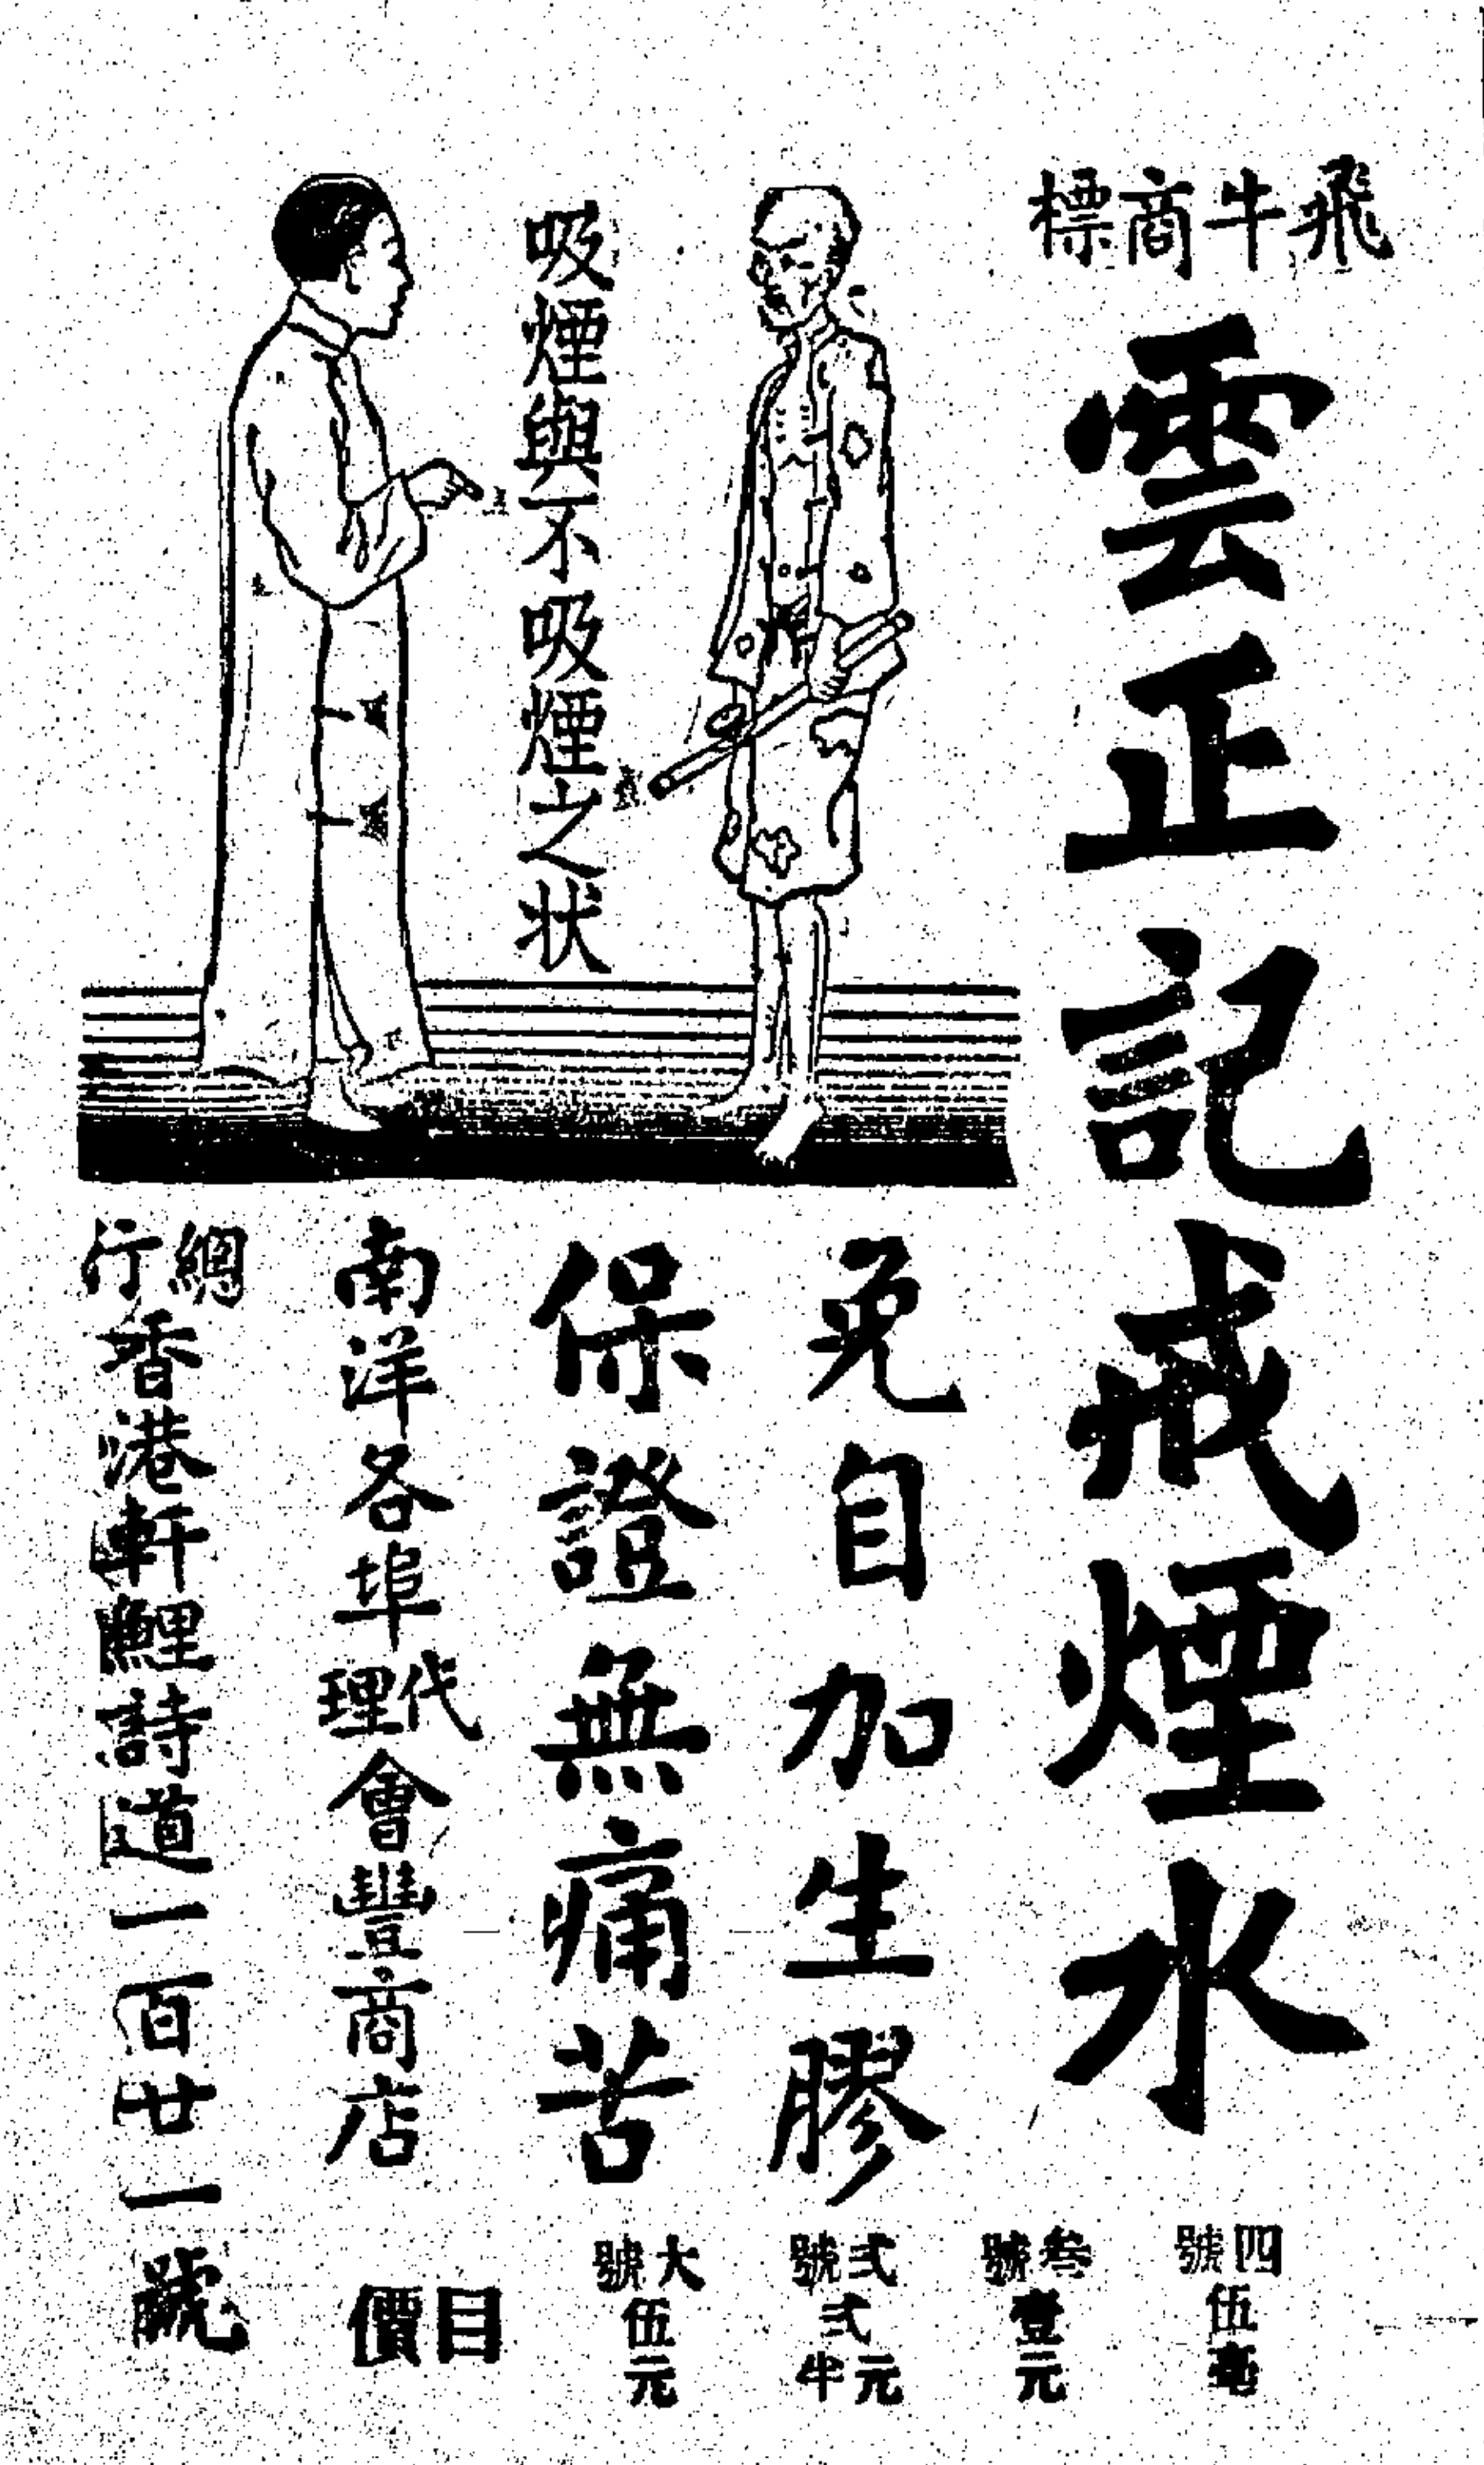 飛牛商標
雲正記戒煙水
吸煙與不吸煙之狀
免自加生膠
保證無痛苦
南洋各埠代理會豐商店
總行香港軒鯉詩道一百廿一號
四號伍毫
叁號壹元
弍號弍元半
大號伍元
目價